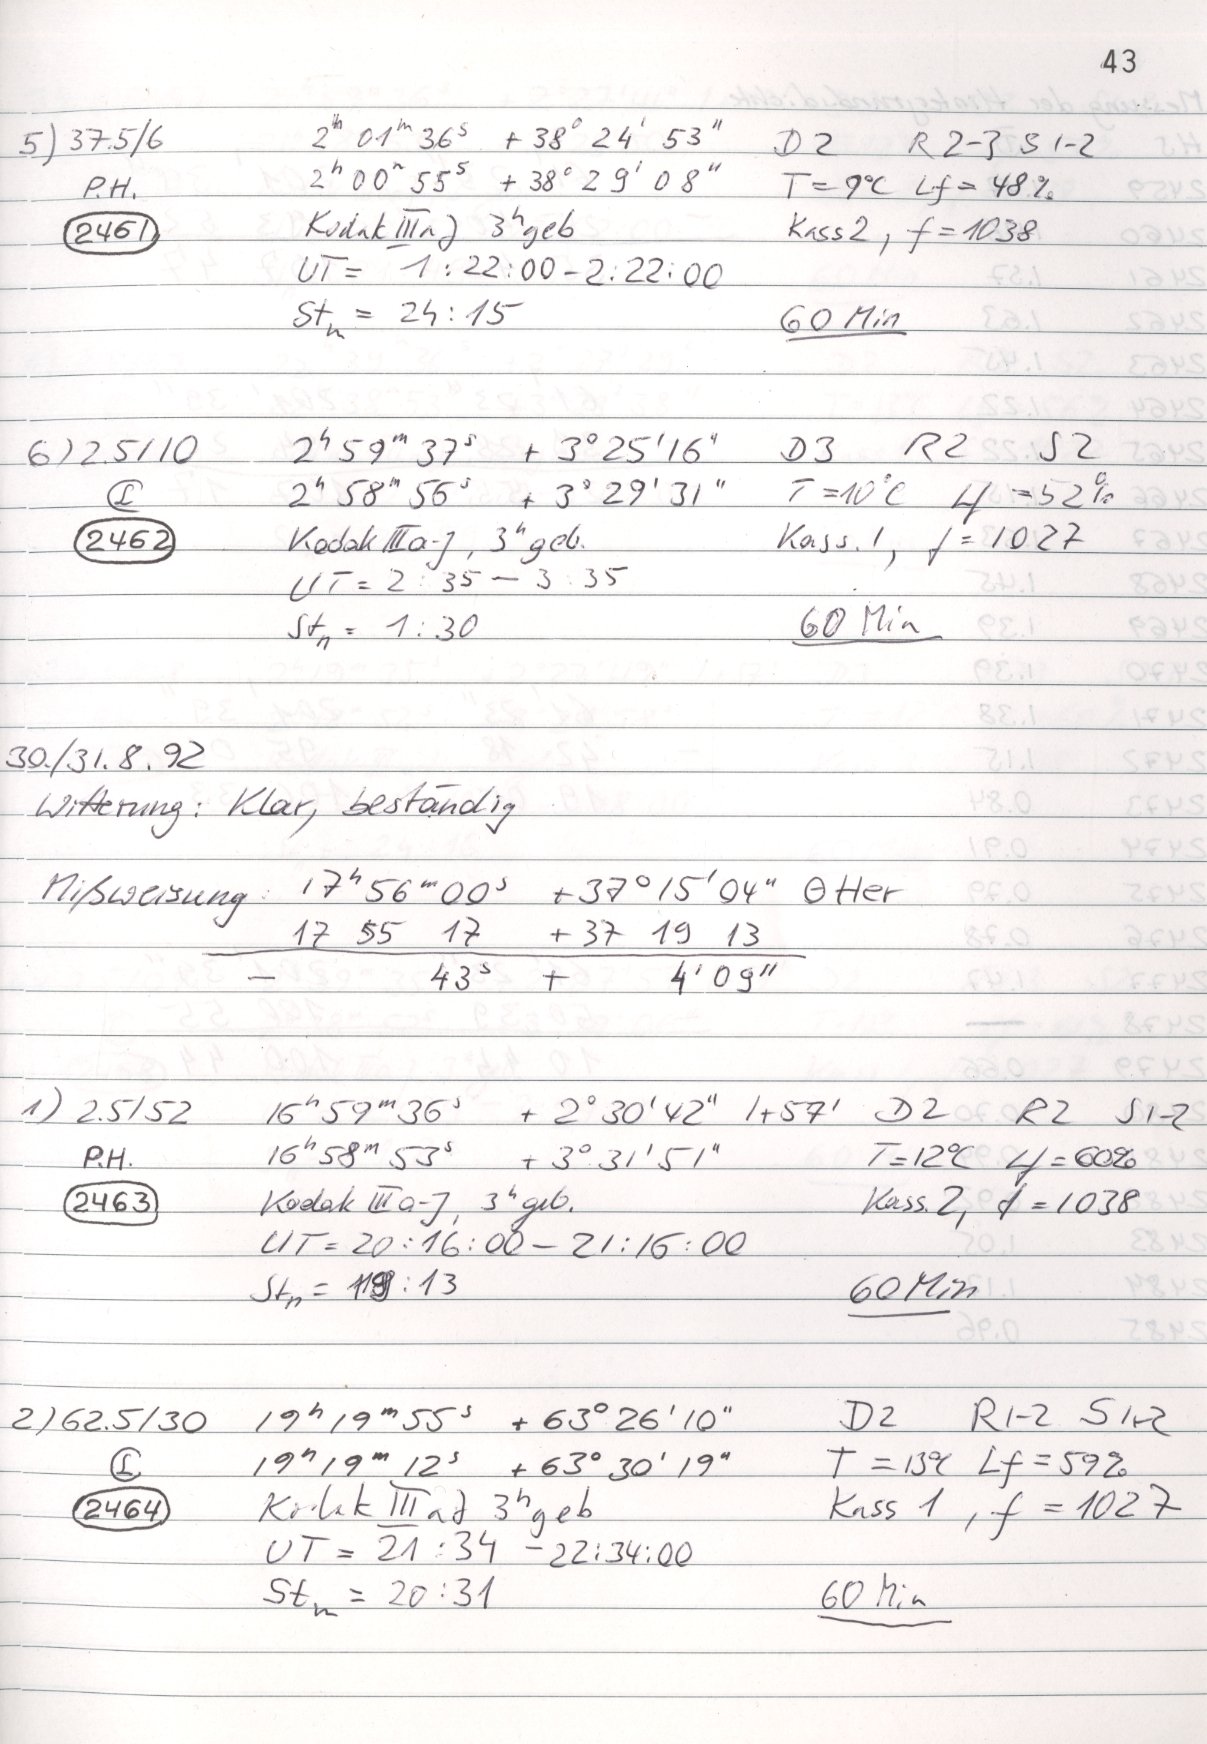 43
5) 37.5/6 2ʰ 01ᵐ 36ˢ + 38° 24' 53" D2 R 2-3 S 1-2
P.H. 2ʰ 00ᵐ 55ˢ + 38° 29' 08" T = 9°C Lf = 48%
2461 Kodak IIIaJ 3ʰ geb Kass 2, f = 1038
UT = 1:22:00 - 2:22:00
Stₙ = 24:15 60 Min
6) 2.5/10 2ʰ 59ᵐ 37ˢ + 3° 25' 16" D3 R2 S2
2ʰ 58ᵐ 56ˢ + 3° 29' 31" T = 10°C Lf = 52%
2462 Kodak IIIa-J, 3ʰ geb. Kass. 1, f = 1027
UT = 2:35 - 3:35
Stₙ = 1:30 60 Min
30./31.8.92
Witterung: Klar, beständig
Mißweisung: 17ʰ 56ᵐ 00ˢ + 37° 15' 04" Θ Her
17 55 17 + 37 19 13
- 43ˢ + 4' 09"
1) 2.5/52 16ʰ 59ᵐ 36ˢ + 2° 30' 42" 1+57' D2 R2 S1-2
P.H. 16ʰ 58ᵐ 53ˢ + 3° 31' 51" T = 12°C Lf = 60%
2463 Kodak IIIa-J, 3ʰ geb. Kass. 2, f = 1038
UT = 20:16:00 - 21:16:00
Stₙ = :13 60 Min
2) 62.5/30 19ʰ 19ᵐ 55ˢ + 63° 26' 10" D2 R1-2 S1-2
19ʰ 19ᵐ 12ˢ + 63° 30' 19" T = 13°C Lf = 59%
2464 Kodak IIIaJ 3ʰ geb Kass 1, f = 1027
UT = 21:34 - 22:34:00
Stₙ = 20:31 60 Min